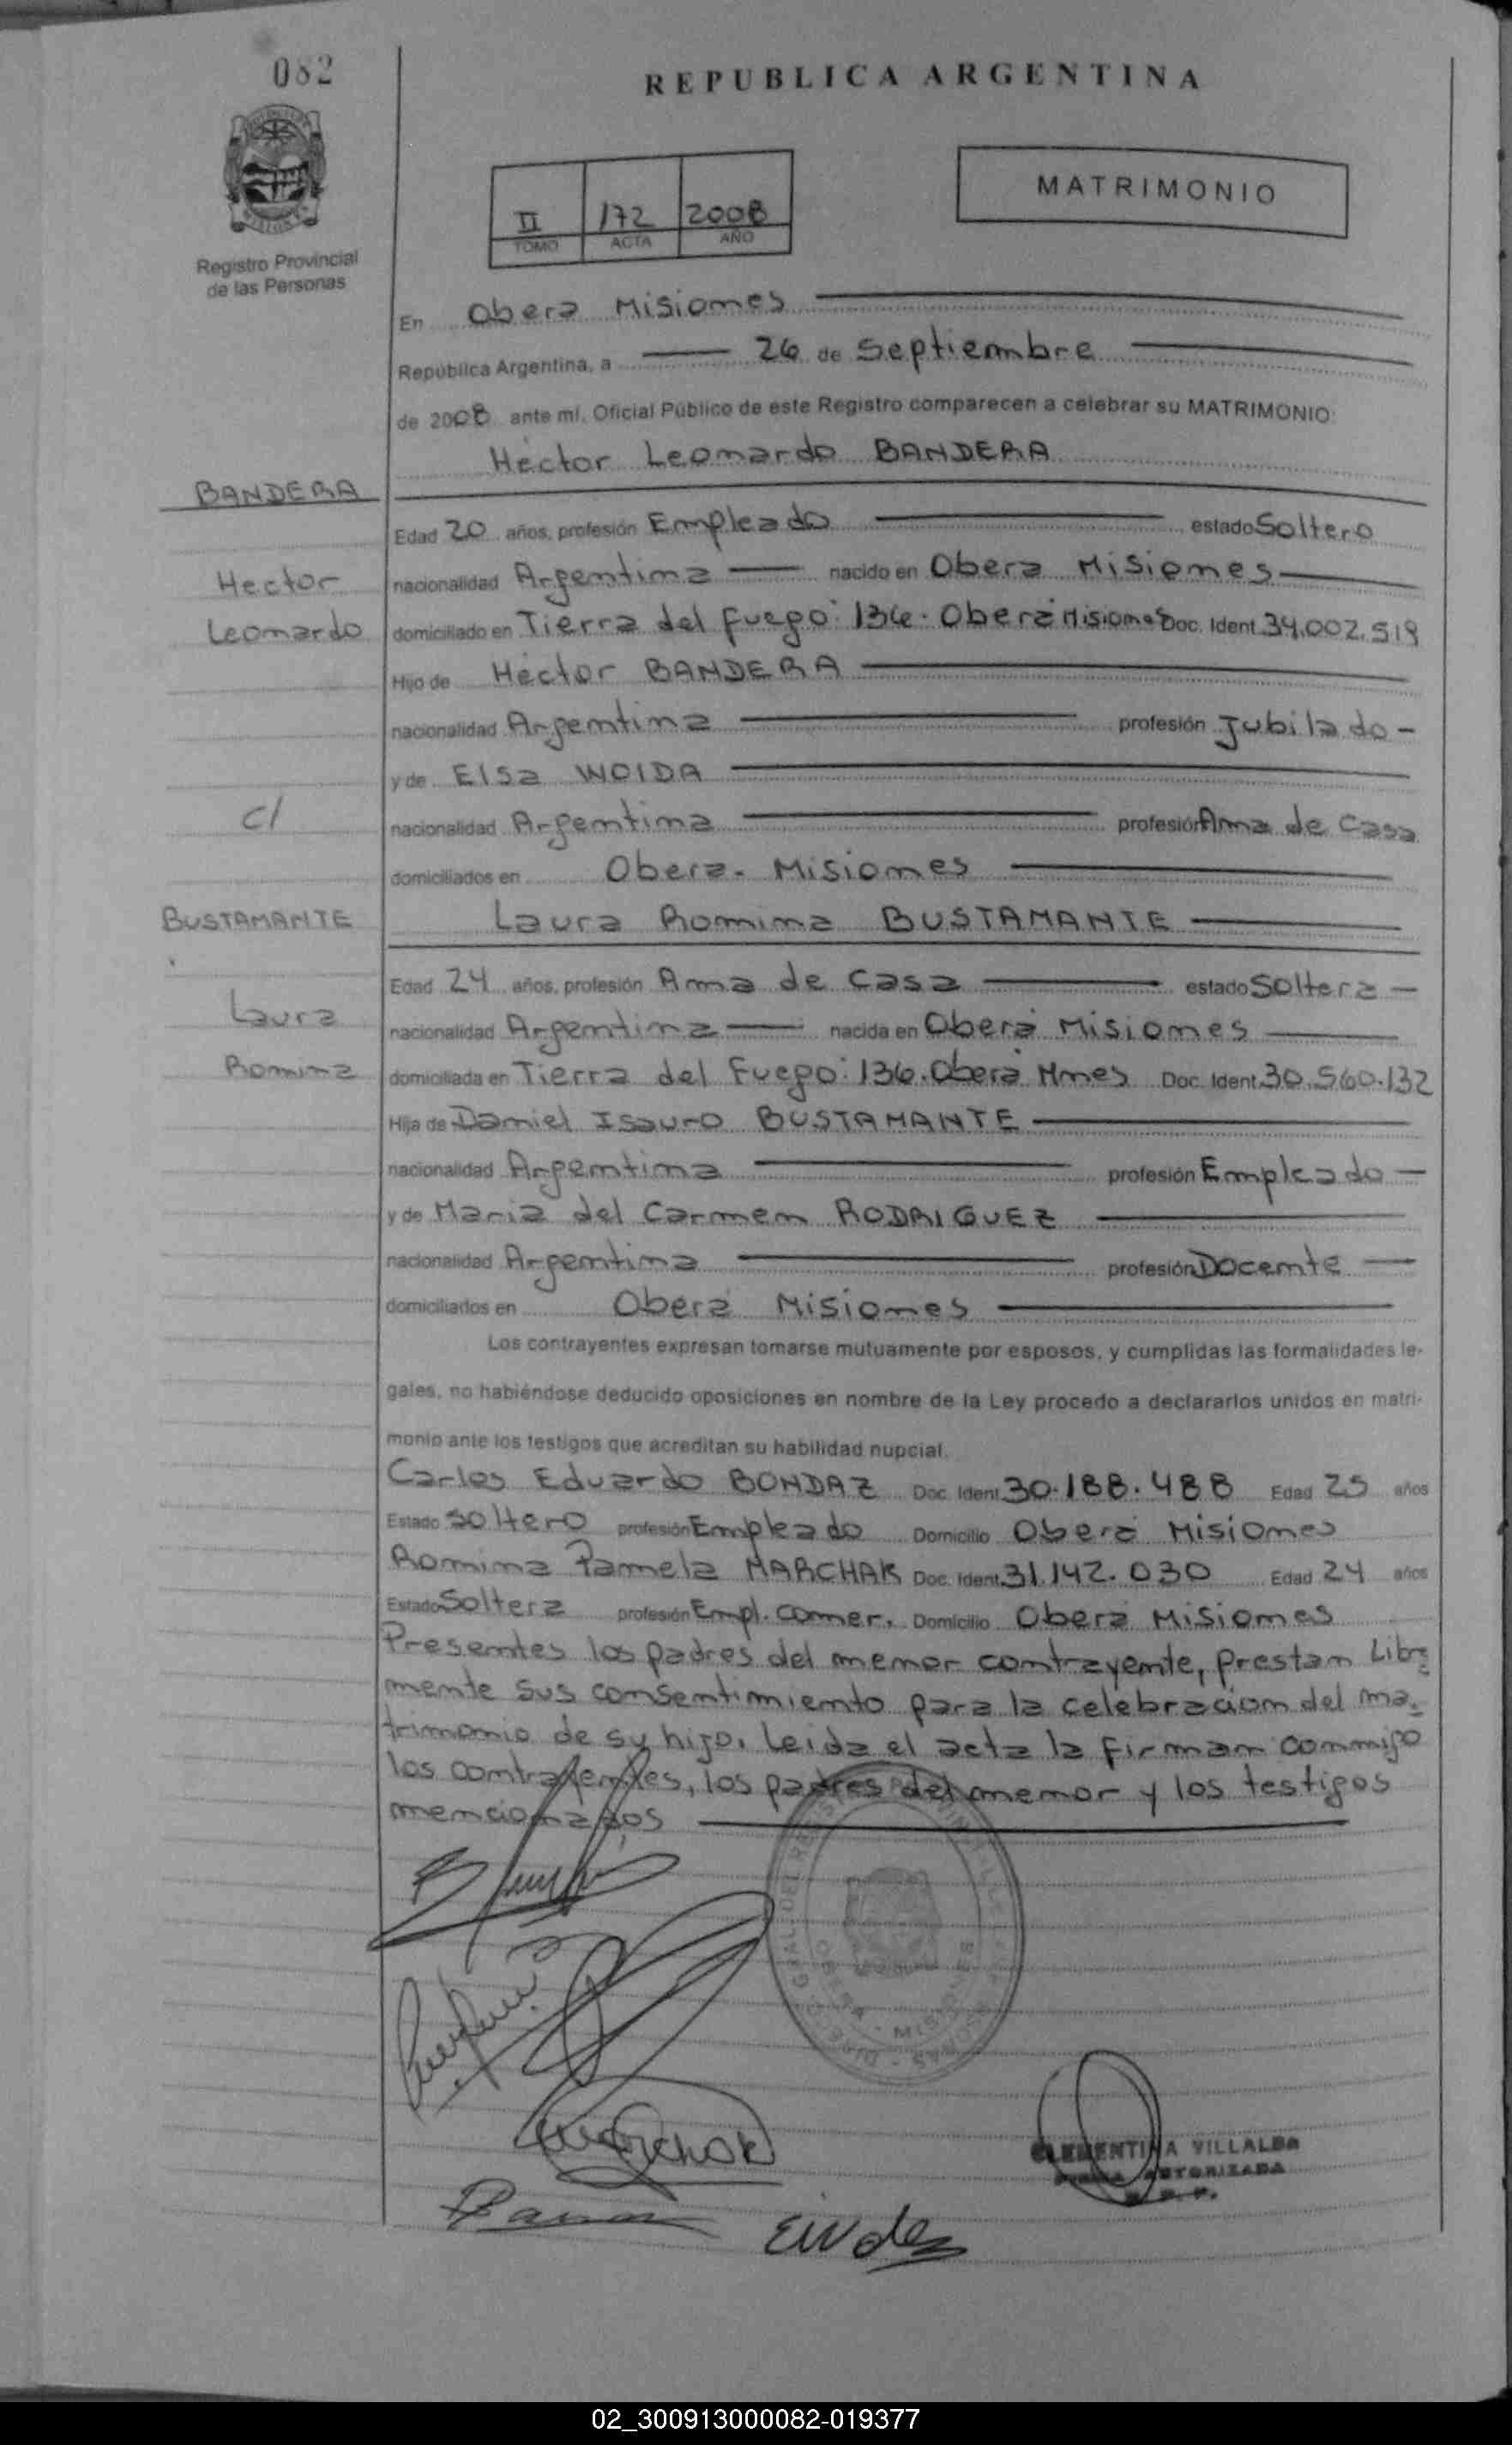 082
REPUBLICA ARGENTINA
MATRIMONIO
II 172 2008
TOMO ACTA AÑO
Registro Provincial
de las Personas
En Obera Misiones
República Argentina, a 26 de Septiembre
de 2008 ante mí, Oficial Público de este Registro comparecen a celebrar su MATRIMONIO:
Héctor Leonardo BANDERA
BANDERA
Edad 20 años, profesión Empleado estado Soltero
Hector
nacionalidad Argentina nacido en Obera Misiones
Leonardo
domiciliado en Tierra del fuego: 136. Oberá Misiones Doc. Ident. 34.002.519
Hijo de Héctor BANDERA
nacionalidad Argentina profesión Jubilado -
y de Elsa WOIDA
c/
nacionalidad Argentina profesión Ama de Casa
domiciliados en Obera. Misiones
BUSTAMANTE
Laura Romina BUSTAMANTE
Edad 24 años, profesión Ama de Casa estado Soltera -
Laura
nacionalidad Argentina nacida en Oberá Misiones
Romina
domiciliada en Tierra del Fuego: 136. Oberá Mnes Doc. Ident. 30.560.132
Hija de Daniel Isauro BUSTAMANTE
nacionalidad Argentina profesión Empleado -
y de Maria del Carmen RODRIGUEZ
nacionalidad Argentina profesión Docente
domiciliados en Oberá Misiones
Los contrayentes expresan tomarse mutuamente por esposos, y cumplidas las formalidades le-
gales, no habiéndose deducido oposiciones en nombre de la Ley procedo a declararlos unidos en matri-
monio ante los testigos que acreditan su habilidad nupcial.
Carlos Eduardo BONDAZ Doc. Ident. 30.188.488 Edad 25 años
Estado Soltero profesión Empleado Domicilio Oberá Misiones
Romina Pamela MARCHAK Doc. Ident. 31.142.030 Edad 24 años
Estado Soltera profesión Empl. Comer. Domicilio Oberá Misiones
Presentes los padres del menor contrayente, prestan Libre
mente sus consentimiento para la celebración del ma-
trimonio de su hijo. Leida el acta la firman conmigo
los contrayentes, los padres del menor y los testigos
mencionados
OBERA - MISIONES
CLEMENTINA VILLALBA
FIRMA AUTORIZADA
R. P. P.
02_300913000082-019377